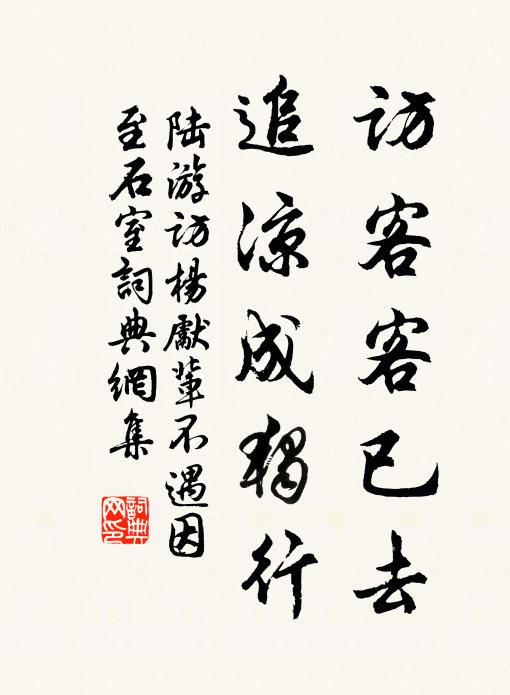 访客客已去
追凉成独行
陆游访楊獻辈不遇因
至石室詞典網集
詞典
网印